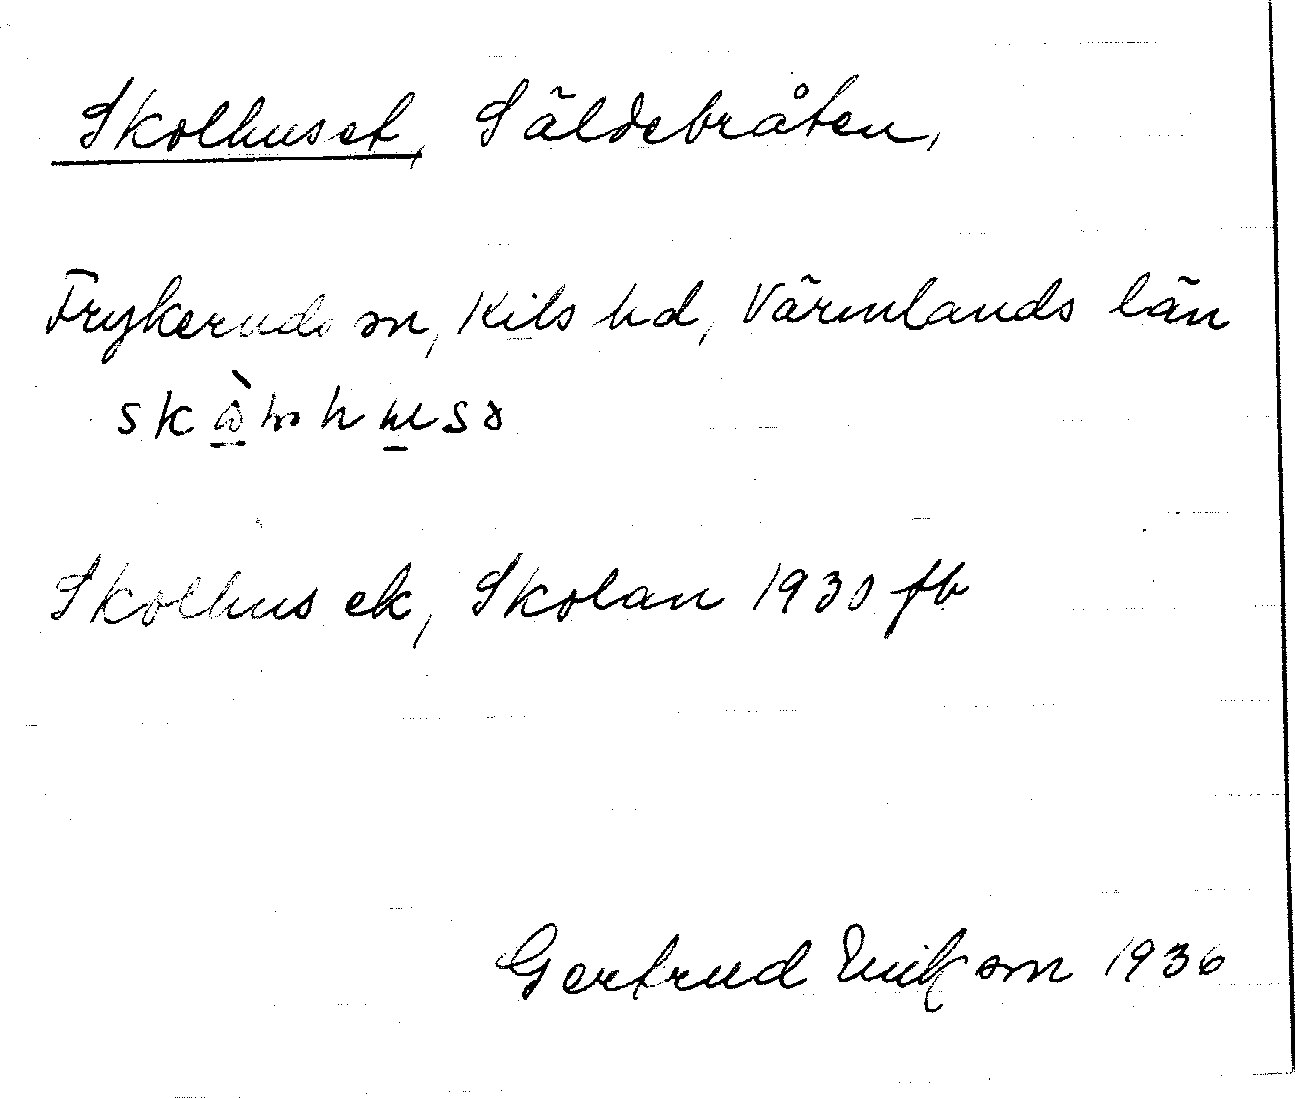 Skolhuset, Säldebråten,
Frykeruds sn, Kils hd, Värmlands län
Skolhus ek, Skolan 1930 fb
Gertrud Erikson 1936